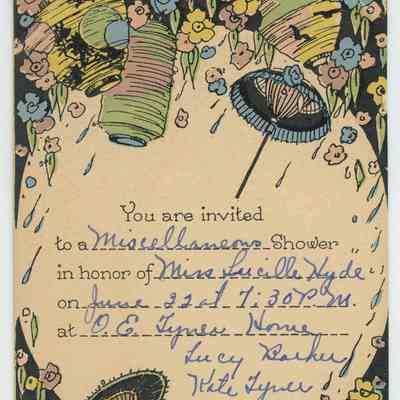 You are invited
to a Miscellaneous Shower
in honor of Miss Lucille Hyde
on June 22 at 7:30 P.M.
at O. E. Tyner Home
Lucy Barker
Kate Tyner